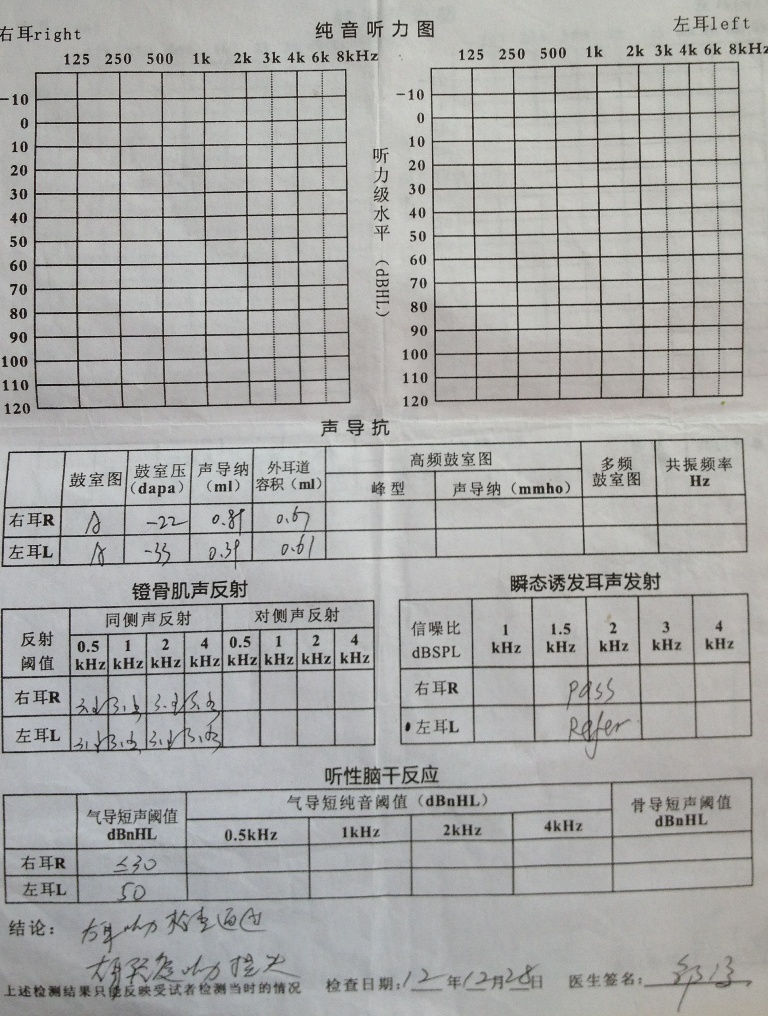 右耳right 纯音听力图 左耳left
125 250 500 1k 2k 3k 4k 6k 8kHz 125 250 500 1k 2k 3k 4k 6k 8kHz
-10 -10
0 0
10 10
20 20
30 30
40 40
50 50
60 60
70 70
80 80
90 90
100 100
110 110
120 120
听力级水平(dBHL)
声导抗
鼓室图 鼓室压(dapa) 声导纳(ml) 外耳道容积(ml) 高频鼓室图 多频鼓室图 共振频率Hz
峰型 声导纳(mmho)
右耳R A -22 0.67
左耳L A -33 0.39 0.61
镫骨肌声反射 瞬态诱发耳声发射
反射阈值 同侧声反射 对侧声反射
0.5kHz 1kHz 2kHz 4kHz 0.5kHz 1kHz 2kHz 4kHz
右耳R 引出 引出 引出 引出
左耳L 引出 引出 引出 引出
信噪比dBSPL 1kHz 1.5kHz 2kHz 3kHz 4kHz
右耳R pass
左耳L Refer
听性脑干反应
气导短声阈值dBnHL 气导短纯音阈值(dBnHL) 骨导短声阈值dBnHL
0.5kHz 1kHz 2kHz 4kHz
右耳R ≤30
左耳L 50
结论: 右耳听力检查通过
听力损失
上述检测结果只能反映受试者检测当时的情况 检查日期:12年12月28日 医生签名: